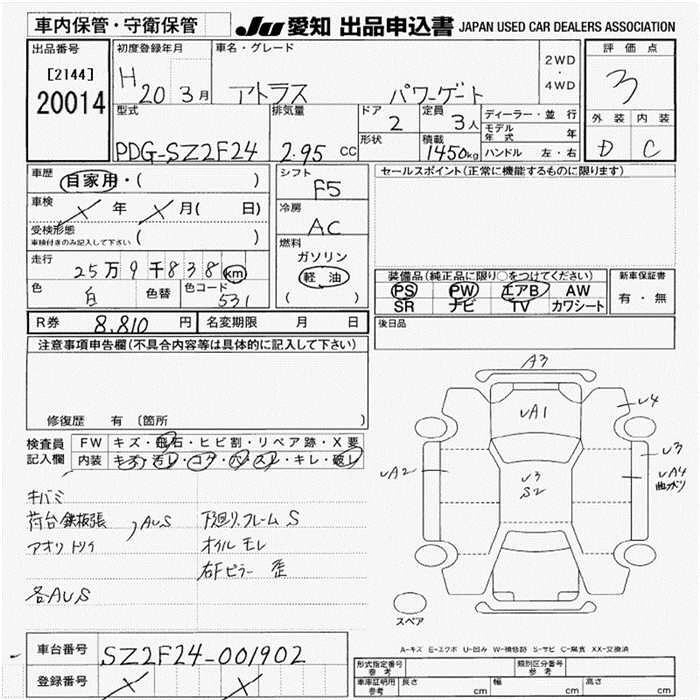 車内保管・守衛保管
JU 愛知 出品申込書 JAPAN USED CAR DEALERS ASSOCIATION
出品番号
[2144]
20014
初度登録年月
H 20 3月
車名・グレード
アトラス パワーゲート
2WD
・
4WD
評価点
3
外装 内装
D C
型式
PDG-SZ2F24
排気量
2.95 CC
ドア
2
定員
3人
形状
積載
1450kg
ディーラー・並行
モデル年式 年
ハンドル 左・右
車歴
自家用・( )
車検
年 月( 日)
受検形態
車検付きのみ記入して下さい ( )
走行
25万9千838km
色
白
色替
色コード
531
R券 8,810 円
名変期限 月 日
シフト
F5
冷房
AC
燃料
ガソリン
軽油
( )
セールスポイント(正常に機能するものに限ります)
装備品(純正品に限り○をつけてください)
PS PW エアB AW
SR ナビ TV カワシート
新車保証書
有・無
後日品
注意事項申告欄(不具合内容等は具体的に記入して下さい)
修復歴 有〔箇所 〕
検査員記入欄
FW キズ・飛石・ヒビ割・リペア跡・X要
内装 キズ・汚レ・コゲ・穴・スレ・キレ・破レ
キバミ
荷台鉄板張
アオリトリイ
, AUS
各AUS
下廻リ、フレーム S
オイルモレ
右Fピラー 歪
A3
UA1
U4
UA2
U3
S2
U3
UA4
スペア
A-キズ E-エクボ U-凹み W-補修跡 S-サビ C-腐食 XX-交換済
車台番号
SZ2F24-001902
登録番号
形式指定番号
参考
類別区分番号
参考
車庫証明用
参考
長さ cm
幅 cm
高さ cm